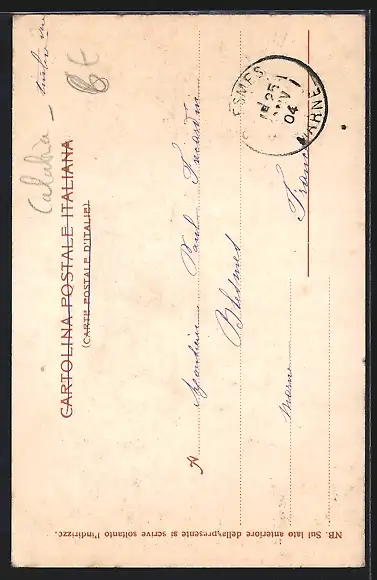 Calabria
CARTOLINA POSTALE ITALIANA
(CARTE POSTALE D'ITALIE)
A Monsieur Paul
Blesmes
Marne
France
ESMES
25
04
MARNE
NB. Sul lato anteriore della presente si scrive soltanto l'indirizzo.